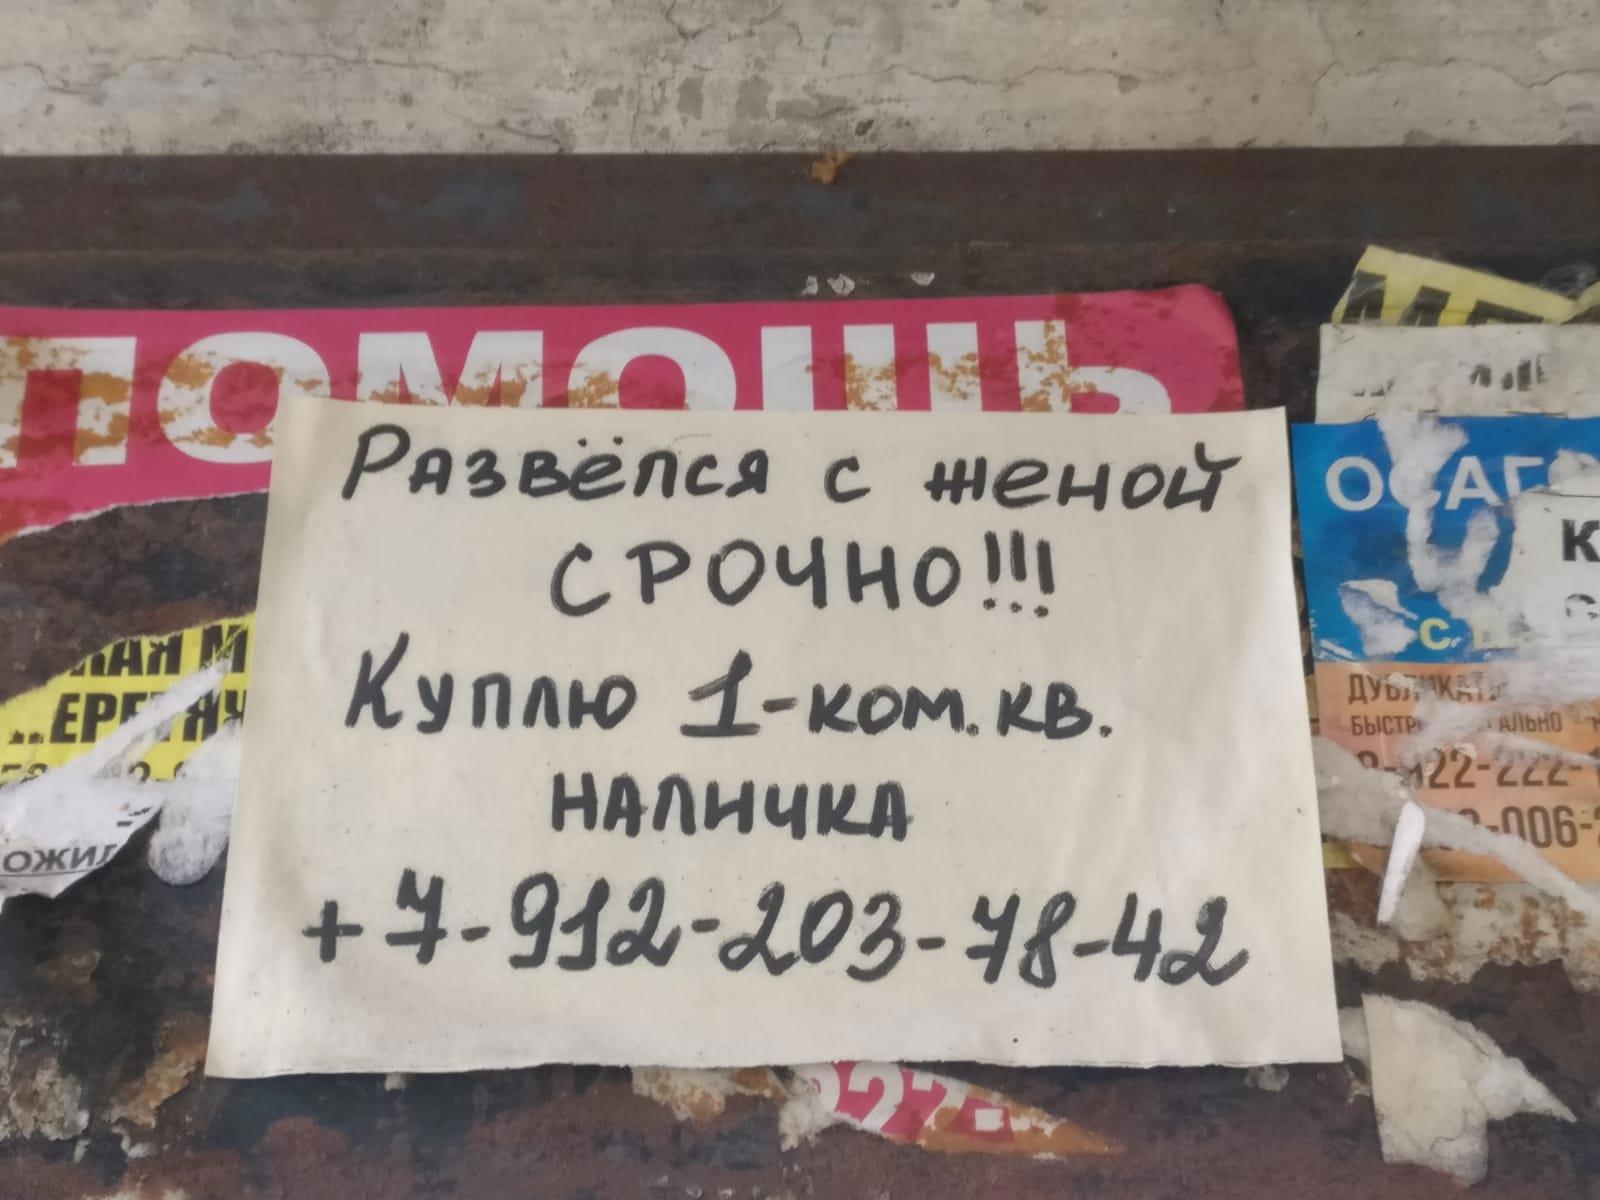 ПОМОЩЬ
Развёлся с женой
СРОЧНО!!!
Куплю 1-ком. кв.
наличка
+7-912-203-78-42
КАЯ М
ОЖИД
ОСАГО
К
С
ДУБЛИКАТ
БЫСТР
8-922-222-
-006-2